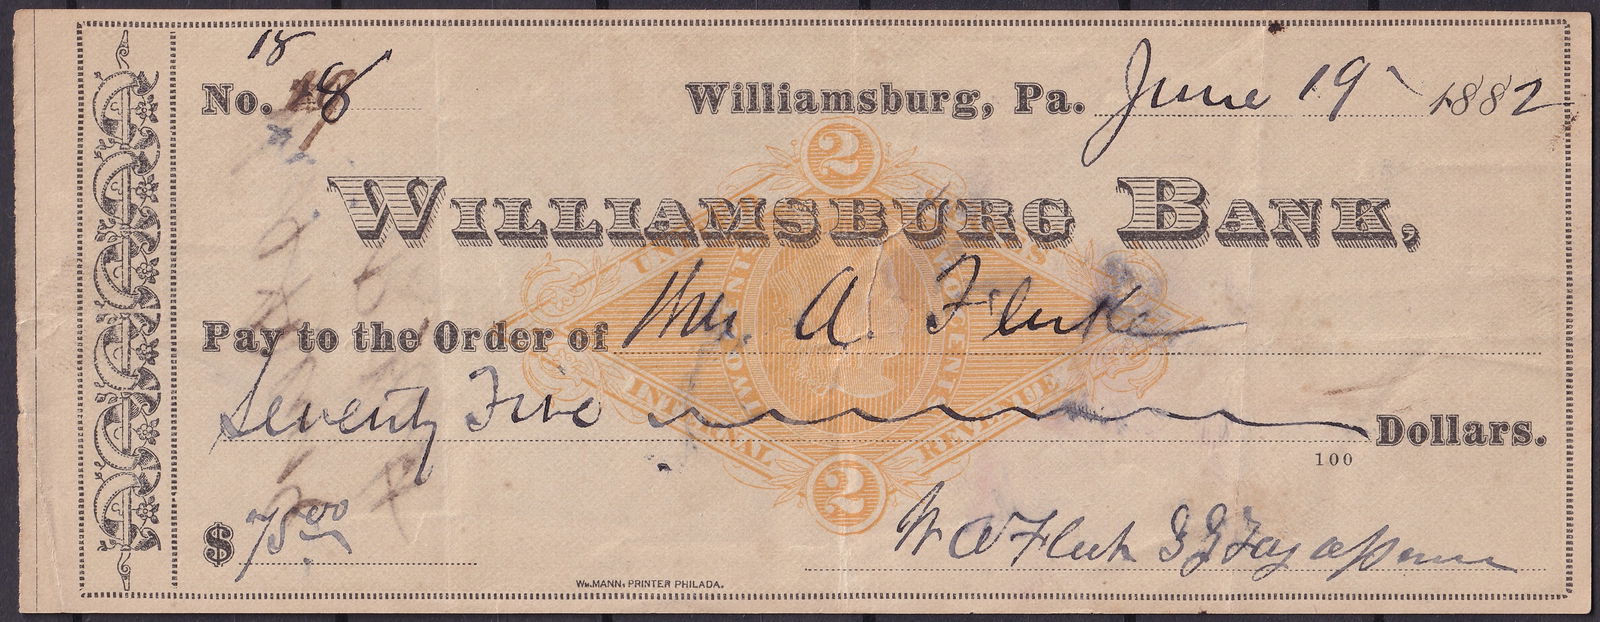 18
No. 18
Williamsburg, Pa. June 19 1882
2
WILLIAMSBURG BANK,
UNITED STATES
Pay to the Order of Wm. A. Fluke
TWO CENTS
TWO CENTS
INTERNAL REVENUE
Seventy Five Dollars.
100
2
$75.00
W A Fluke
WM. MANN, PRINTER PHILADA.